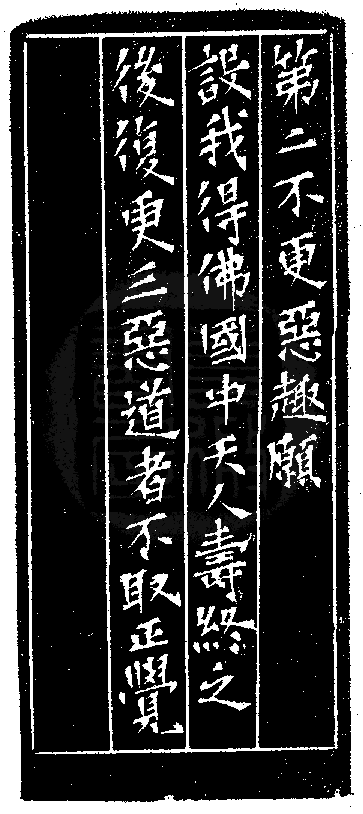 第二不更惡趣願
設我得佛國中天人壽終之
後復更三惡道者不取正覺